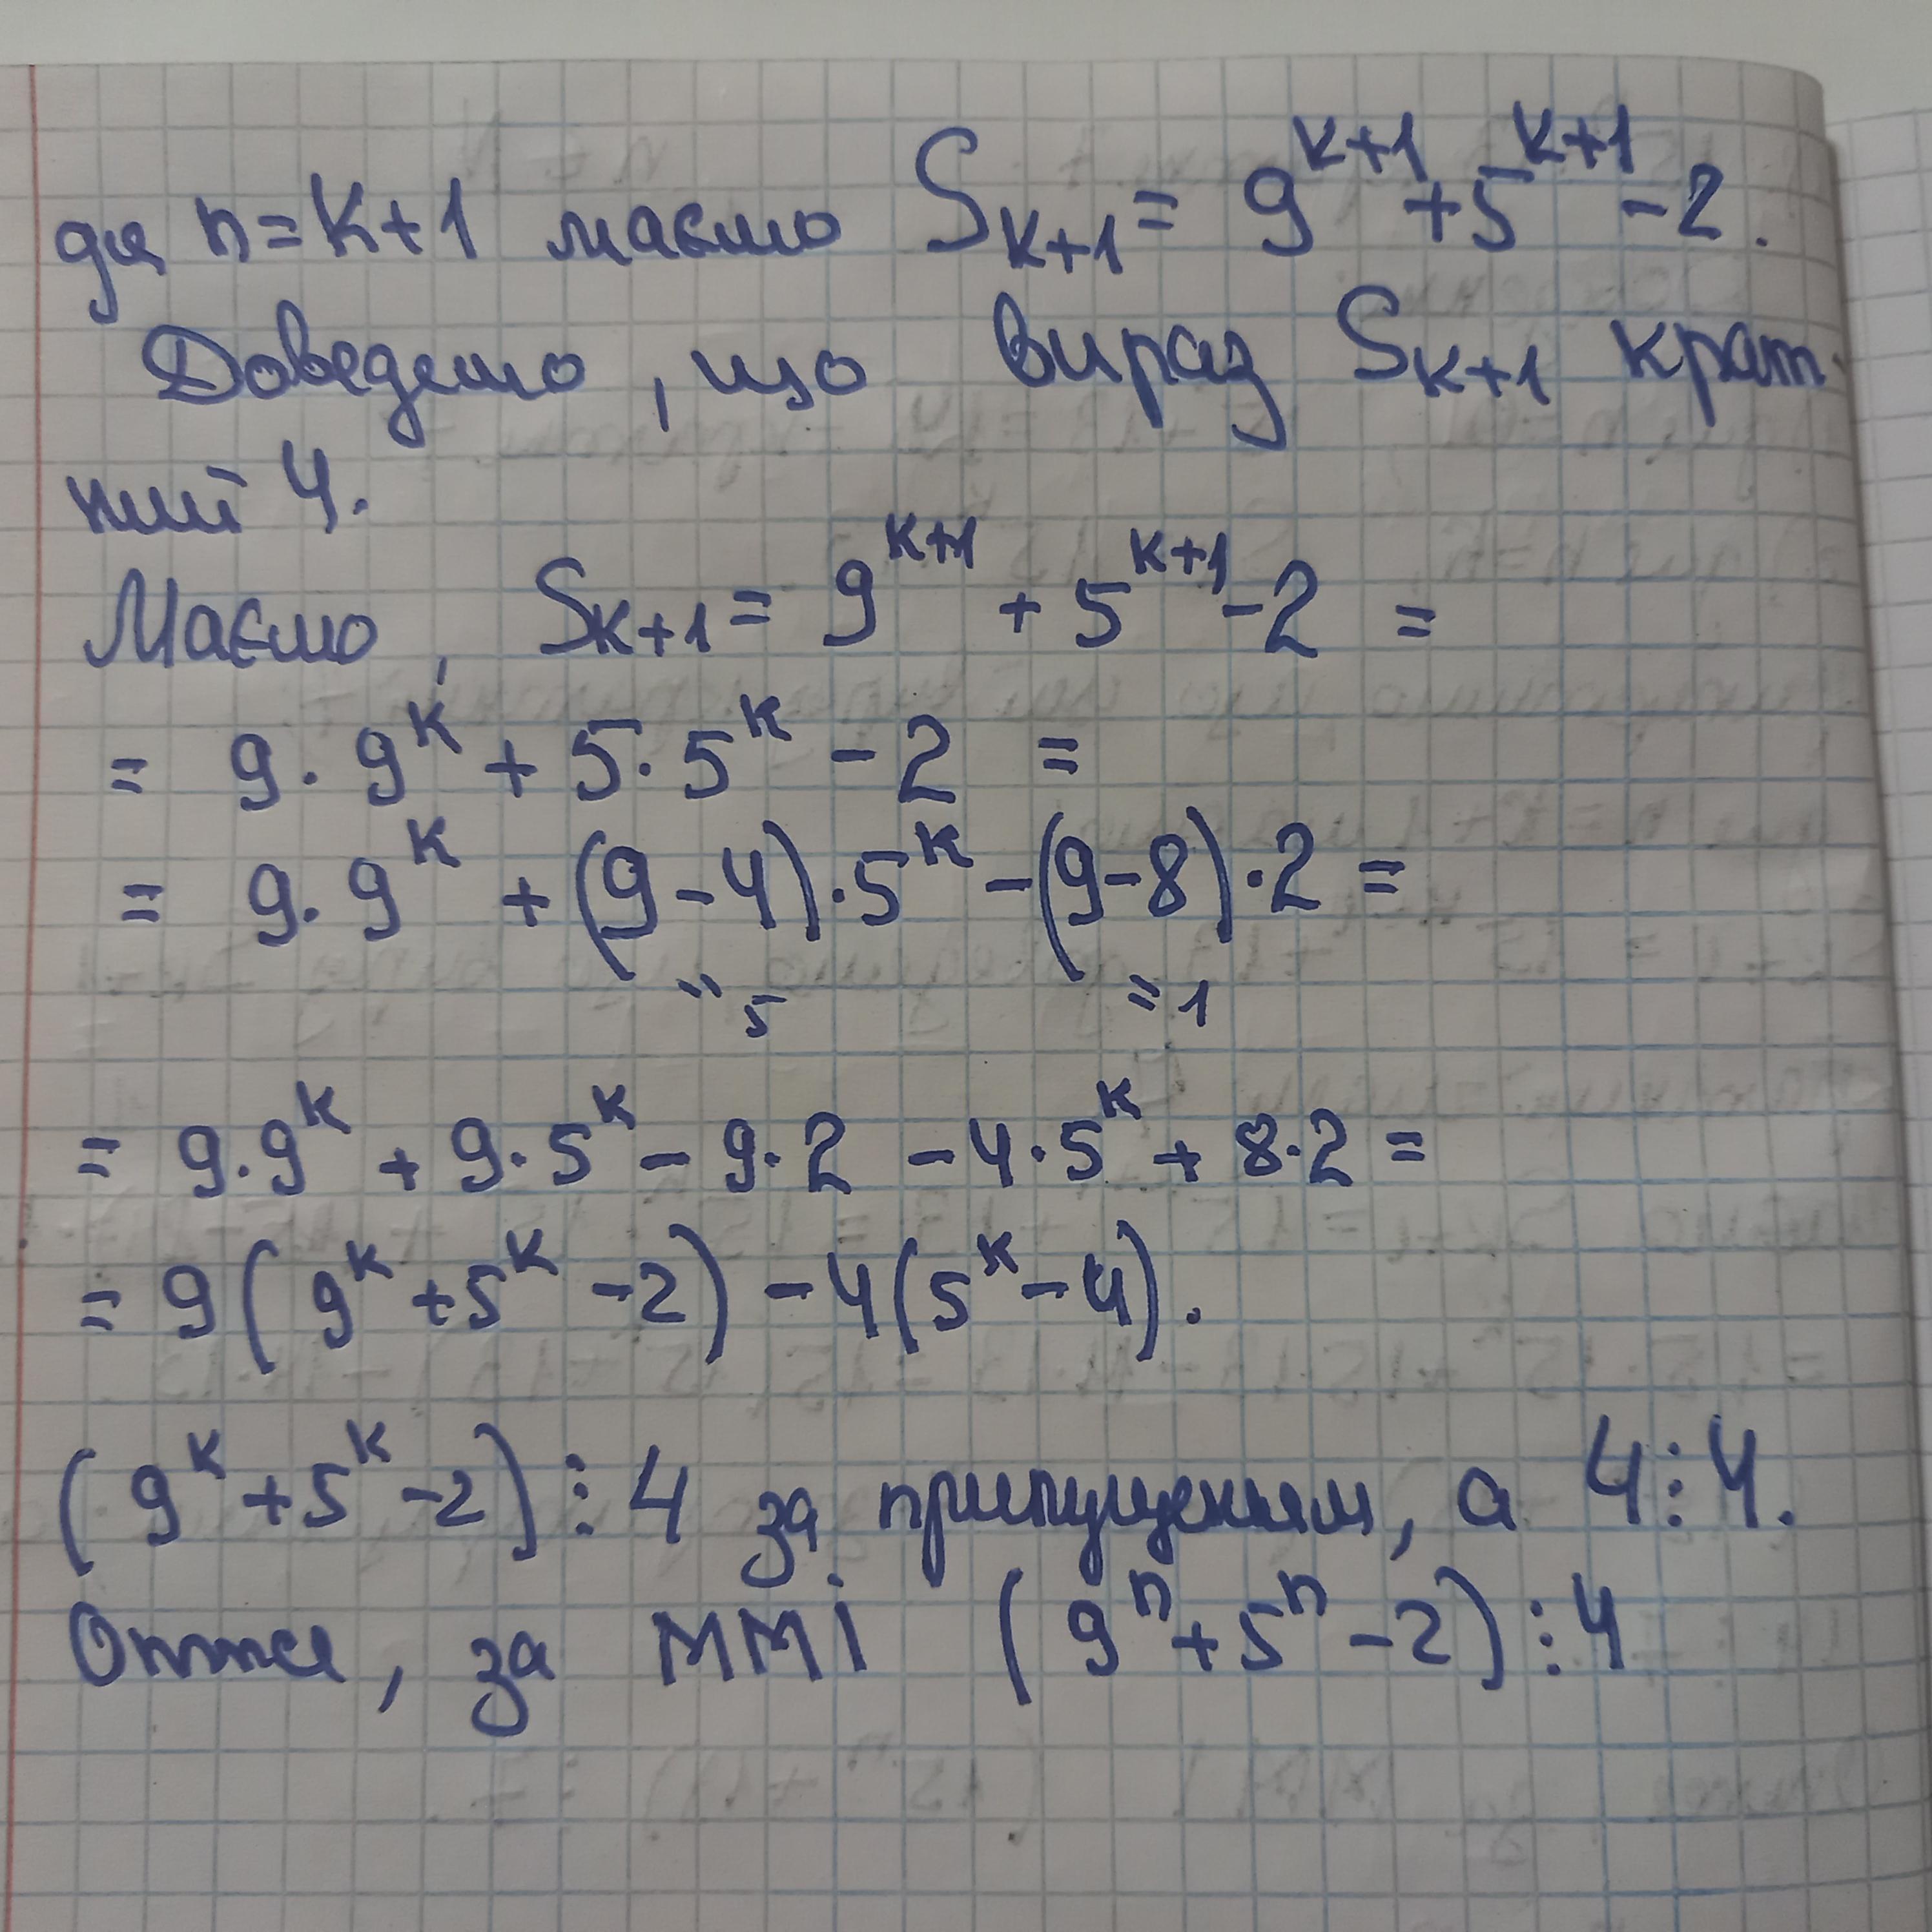 для n=k+1 маємо S_{k+1} = 9^{k+1} + 5^{k+1} - 2.
Доведемо, що вираз S_{k+1} крат-
ний 4.
Маємо, S_{k+1} = 9^{k+1} + 5^{k+1} - 2 =
= 9 · 9^k + 5 · 5^k - 2 =
= 9 · 9^k + (9-4) · 5^k - (9-8) · 2 =
= 5 = 1
= 9 · 9^k + 9 · 5^k - 9 · 2 - 4 · 5^k + 8 · 2 =
= 9 (9^k + 5^k - 2) - 4 (5^k - 4).
(9^k + 5^k - 2) ⋮ 4 за припущенням, а 4 ⋮ 4.
Отже, за ММІ (9^n + 5^n - 2) ⋮ 4